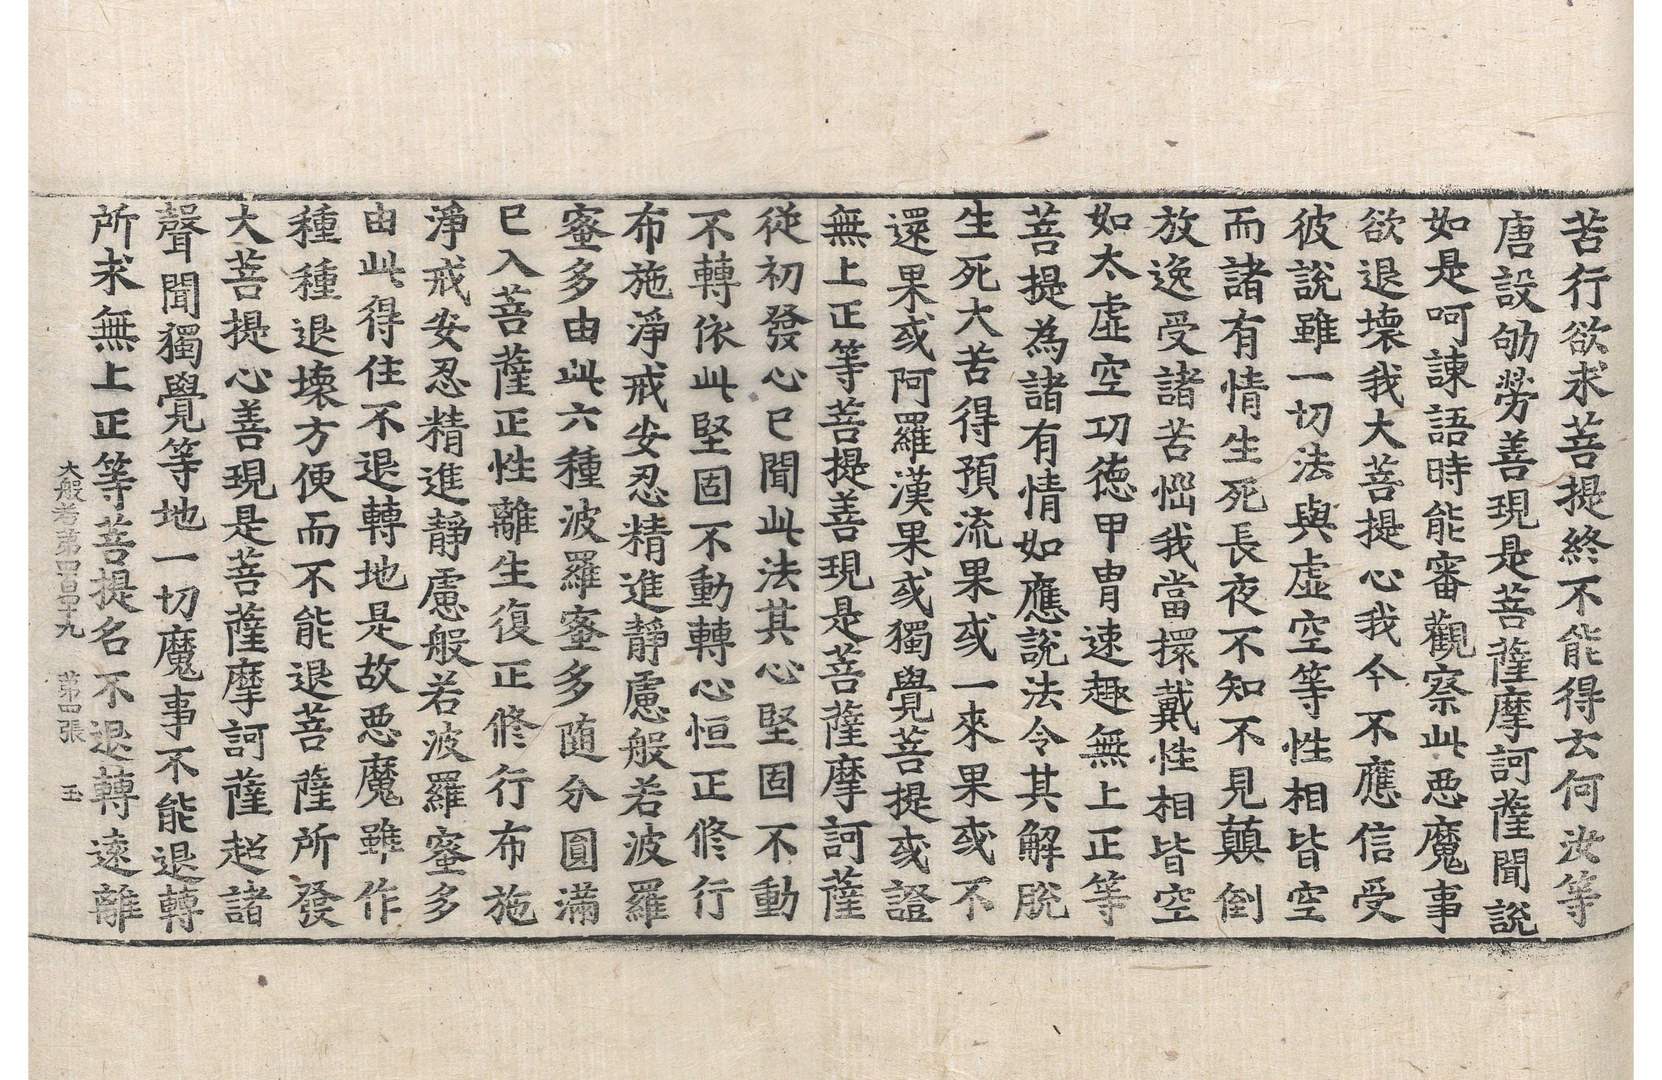 苦行欲求菩提終不能得云何汝等
唐設劬勞善現是菩薩摩訶薩聞說
如是呵諫語時能審觀察此惡魔事
欲退壞我大菩提心我今不應信受
彼說雖一切法與虛空等性相皆空
而諸有情生死長夜不知不見顛倒
放逸受諸苦惱我當擐戴性相皆空
如太虛空功德甲冑速趣無上正等
菩提為諸有情如應說法令其解脫
生死大苦得預流果或一來果或不
還果或阿羅漢果或獨覺菩提或證
無上正等菩提善現是菩薩摩訶薩
從初發心已聞此法其心堅固不動
不轉依此堅固不動轉心恒正修行
布施淨戒安忍精進靜慮般若波羅
蜜多由此六種波羅蜜多隨分圓滿
已入菩薩正性離生復正修行布施
淨戒安忍精進靜慮般若波羅蜜多
由此得住不退轉地是故惡魔雖作
種種退壞方便而不能退菩薩所發
大菩提心善現是菩薩摩訶薩超諸
聲聞獨覺等地一切魔事不能退轉
所求無上正等菩提名不退轉遠離
大般若第四百四十九 第四張 玉